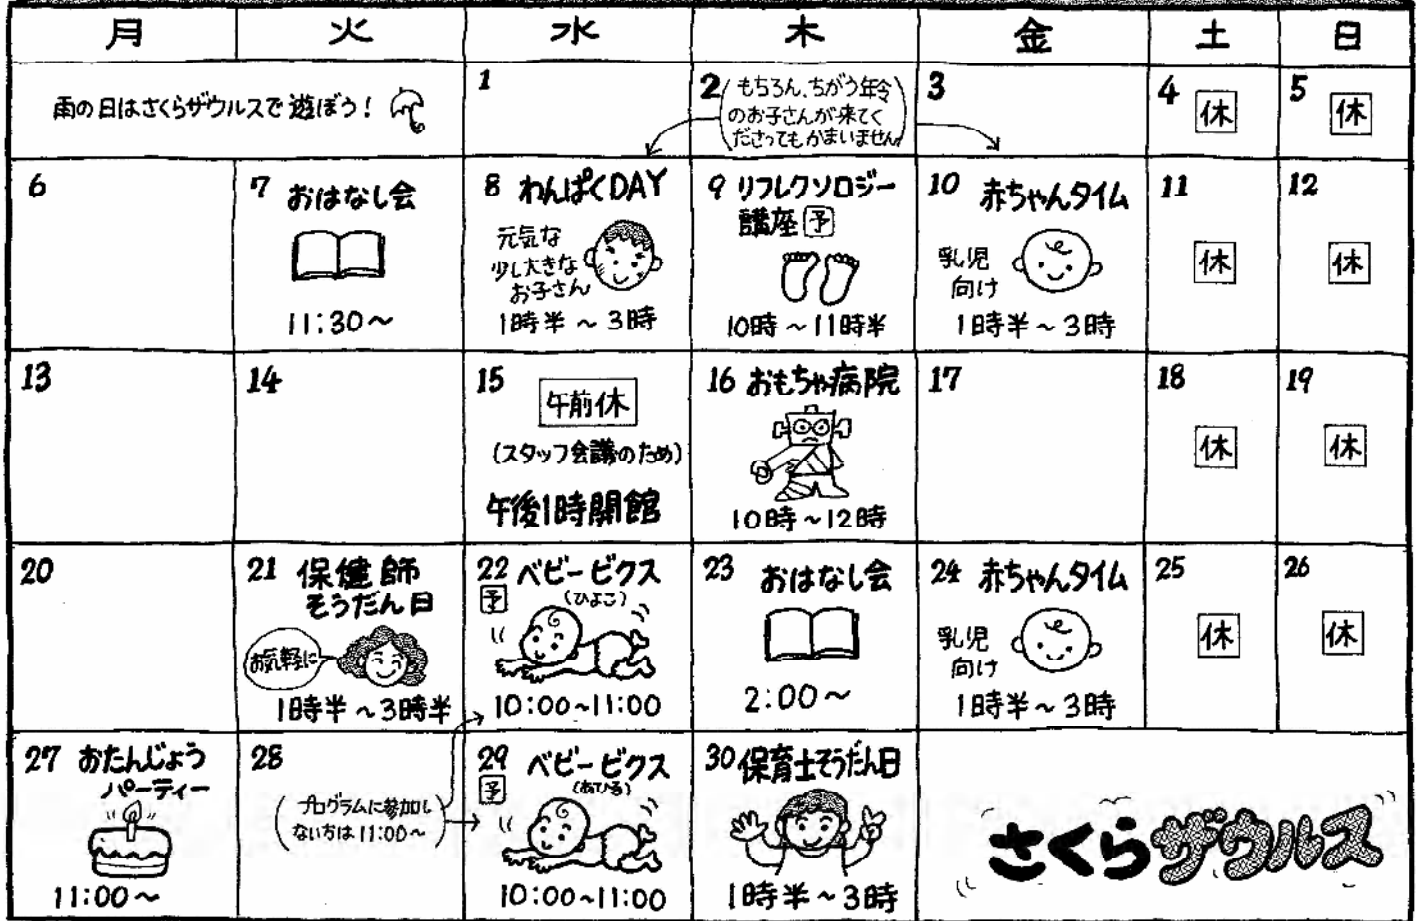 月 火 水 木 金 土 日
雨の日はさくらザウルスで遊ぼう！
1
2
(もちろん、ちがう年令
のお子さんが来てく
ださってもかまいません)
3
4 休
5 休
6
7 おはなし会
11:30～
8 わんぱくDAY
元気な
少し大きな
お子さん
1時半～3時
9 リフレクソロジー
講座 予
10時～11時半
10 赤ちゃんタイム
乳児
向け
1時半～3時
11
休
12
休
13
14
15
午前休
(スタッフ会議のため)
午後1時開館
16 おもちゃ病院
10時～12時
17
18
休
19
休
20
21 保健師
そうだん日
お気軽に
1時半～3時半
22 ベビービクス
予 (ひよこ)
10:00~11:00
23 おはなし会
2:00～
24 赤ちゃんタイム
乳児
向け
1時半～3時
25
休
26
休
27 おたんじょう
パーティー
11:00～
28
(プログラムに参加し
ない方は 11:00～)
29 ベビービクス
予 (あひる)
10:00~11:00
30 保育士そうだん日
1時半～3時
さくらザウルス